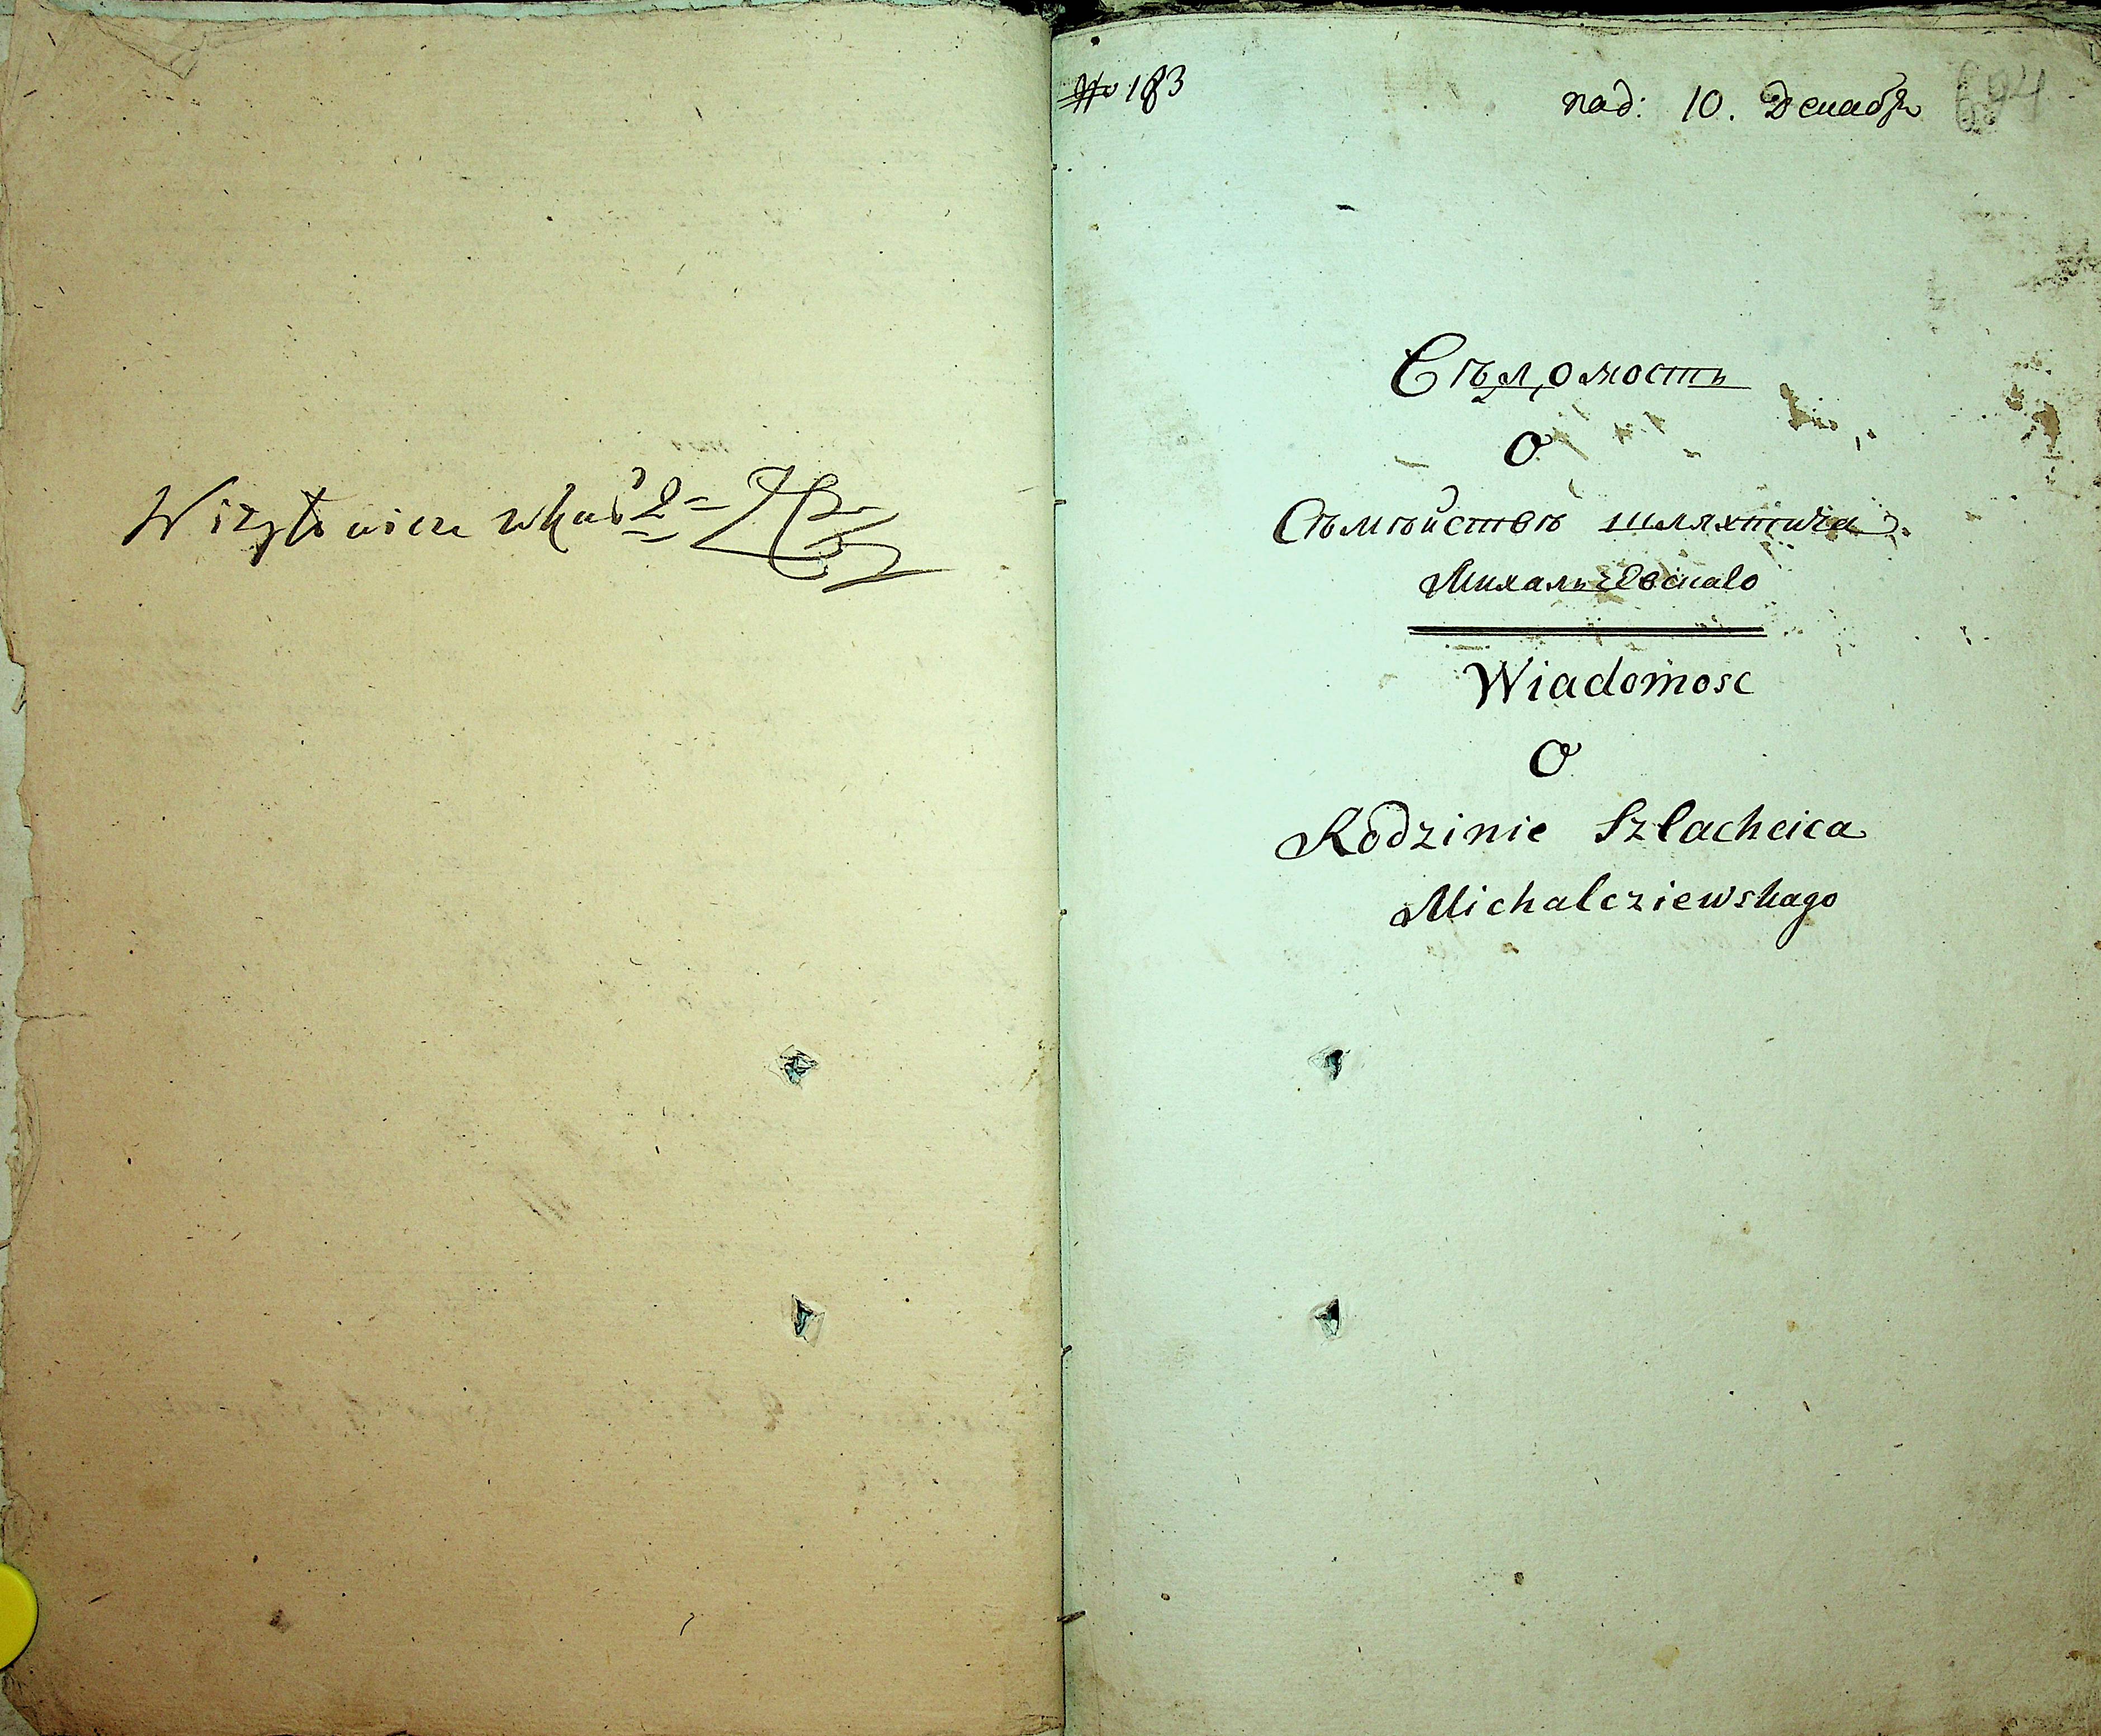 № 183
пад: 10. Декабря
Съдомость
О
Съмѣйствѣ шляхтича
Михальчевскаго
Wiadomosc
O
Rodzinie Szlachcica
Michalcziewskago